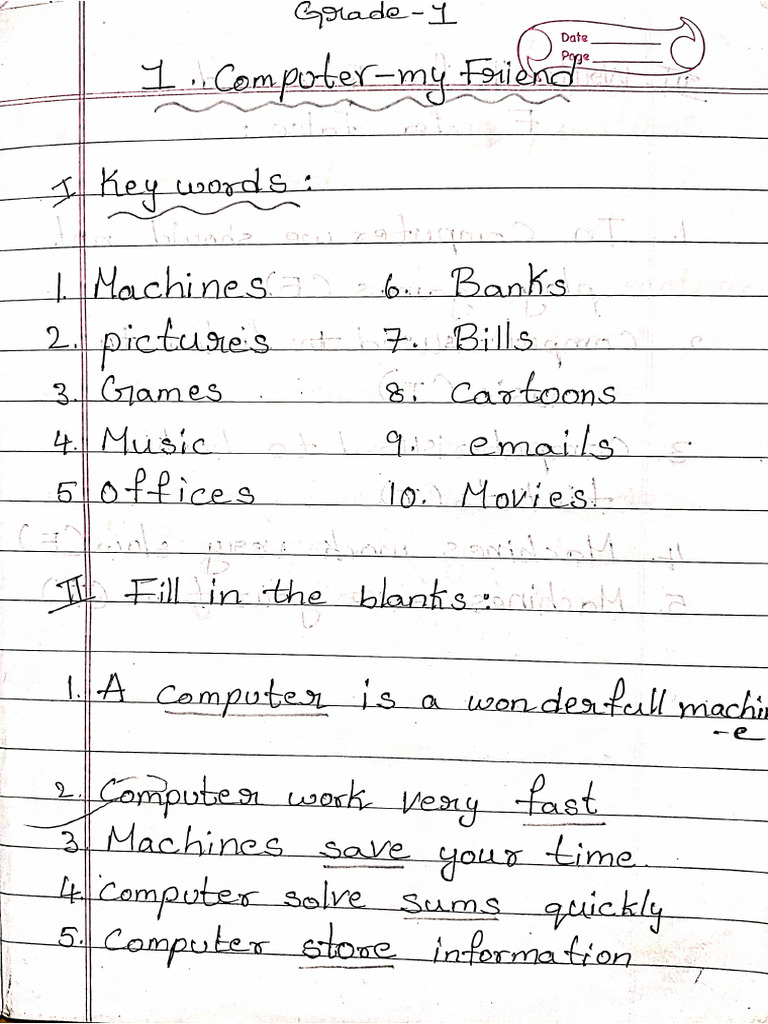 Grade-1
Date
Page
1. Computer-my Friend
I Key words:
1. Machines 6. Banks
2. pictures 7. Bills
3. Games 8. Cartoons
4. Music 9. emails
5 offices 10. Movies
II Fill in the blanks:
1. A computer is a wonderfull machin
-e
2. Computer work very fast
3. Machines save your time
4. Computer solve sums quickly
5. Computer store information